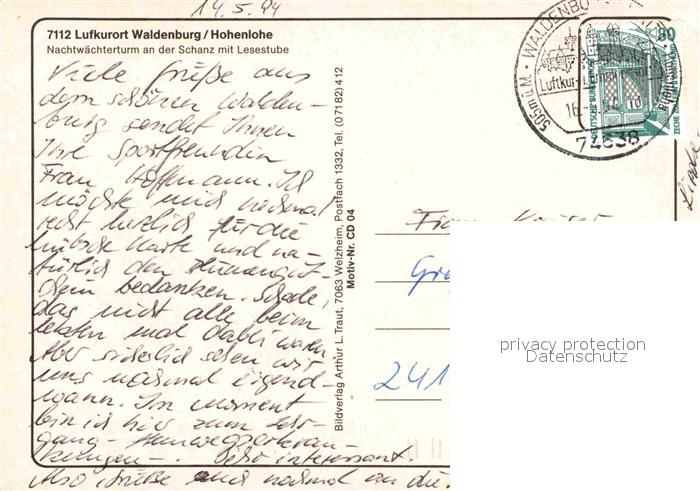 14.5.94
7112 Luftkurort Waldenburg / Hohenlohe
Nachtwächterturm an der Schanz mit Lesestube
Viele Grüße aus
dem schönen Walden-
burg sendet Ihnen
Ihre Sportfreundin
Frau Hoffmann. Ich
möchte mich nochmal
recht herzlich für die
hübsche Karte und na-
türlich den Blumengut-
schein bedanken. Schade,
das nicht alle beim
letzten mal dabei waren.
Aber sicherlich sehen wir
uns nochmal irgend-
wann. Im Moment
bin ich hier zum Lehr-
gang -
- . Sehr interessant.
Also Grüße und nochmal an die
Bildverlag Arthur L. Traut, 7063 Welzheim, Postfach 1332, Tel. (07182) 412
Motiv-Nr. CD 04
505m ü.M. · WALDENBU
Luftkur-
16
10
74638
80
DEUTSCHE BUNDESPOST
ZECHE ZOLLERN
Frau
241
privacy protection
Datenschutz
Kinde